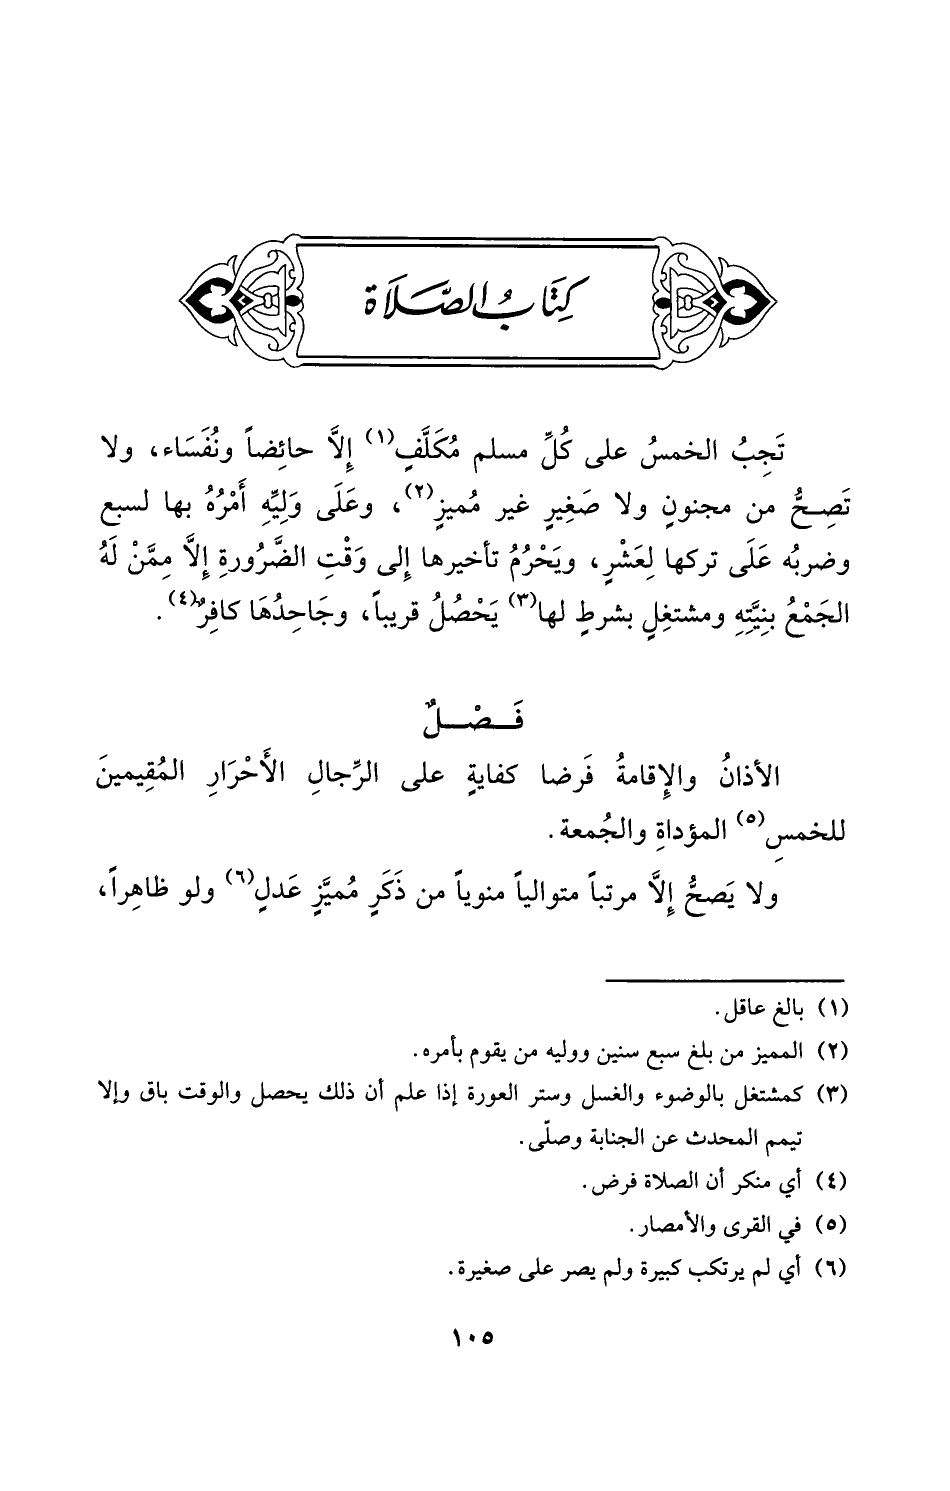 كِتَابُ الصَّلَاة
تَجِبُ الخمسُ على كُلِّ مسلم مُكَلَّفٍ(١) إِلَّا حائِضاً ونُفَسَاء، ولا
تَصِحُّ من مجنونٍ ولا صَغِيرٍ غير مُميزٍ(٢)، وعَلَى وَلِيِّهِ أَمْرُهُ بها لسبع
وضربُه عَلَى تركها لِعَشْرٍ، ويَحْرُمُ تأخيرها إِلى وَقْتِ الضَّرُورةِ إِلَّا مِمَّنْ لَهُ
الجَمْعُ بنِيَّتِهِ ومشتغِلٍ بشرطٍ لها(٣) يَحْصُلُ قريباً، وجَاحِدُهَا كافِرٌ(٤).
فَصْلٌ
الأذانُ والإِقامةُ فَرضا كفايةٍ على الرِّجالِ الأَحْرَارِ المُقِيمينَ
للخمسِ(٥) المؤداةِ والجُمعة.
ولا يَصحُّ إِلَّا مرتباً متوالياً منوياً من ذَكَرٍ مُميَّزٍ عَدلٍ(٦) ولو ظاهِراً،
(١) بالغ عاقل.
(٢) المميز من بلغ سبع سنين ووليه من يقوم بأمره.
(٣) كمشتغل بالوضوء والغسل وستر العورة إذا علم أن ذلك يحصل والوقت باق وإلا
تيمم المحدث عن الجنابة وصلّى.
(٤) أي منكر أن الصلاة فرض.
(٥) في القرى والأمصار.
(٦) أي لم يرتكب كبيرة ولم يصر على صغيرة.
١٠٥